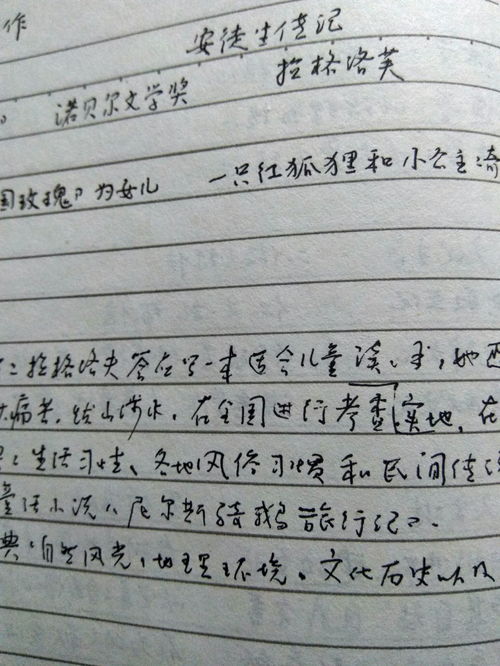 作
安徒生传记
拉格洛芙
诺贝尔文学奖
国玫瑰》为女儿 一只红狐狸和小公主骑
拉格洛夫答应写一本适合儿童读、求,她还
病苦,跋山涉水,在全国进行考查实地,在
生活习性、各地风俗习惯和民间传说
童话小说《尼尔斯骑鹅旅行记》.
典自然风光,地理环境、文化历史以及